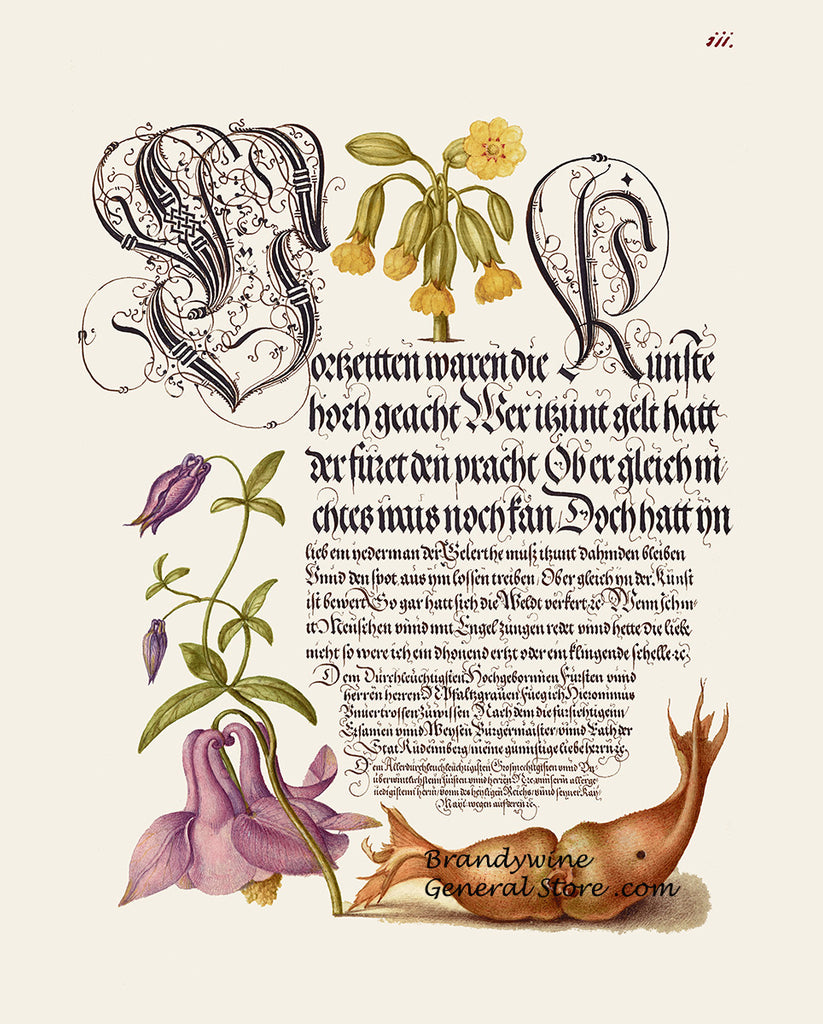 iii.
Vorzeitten waren die Künste
hoch geacht Wer itzunt gelt hatt
der füret den pracht Ob er gleich ni
chtes wais noch kan / Doch hatt yn
lieb ein yederman der Gelerthe muß itzunt dahinden bleiben
Vnnd den spot aus ym lossen treiben / Ob er gleich yn der Kunst
ist bewert So gar hatt sich die Weldt verkert ꝛc Wenn ich mi
it Menschen vnnd mit Engel zungen redet vnnd hette die liebe
nicht so were ich ein dhonend ertzt oder ein klingende schelle ꝛc
Dem Durchleuchtigsten Hochgebornnen Fürsten vnnd
herren herren N Pfaltzgrauen
zuwissen Nach dem die fürsichtigenn
Ersamen vnnd Weysen Burgermaister / vnnd Rath der
Stat meine günnstige liebe herrn ꝛc
Dem Allerdurchleuchtigisten Grosmechtigisten vnnd
vberwintlichsten fürsten vnnd herrn vnserm allerge
nedigistem herrn / vonn des heyligen Reichs / vnnd seyner Kay
May: wegen
Brandywine
General Store .com